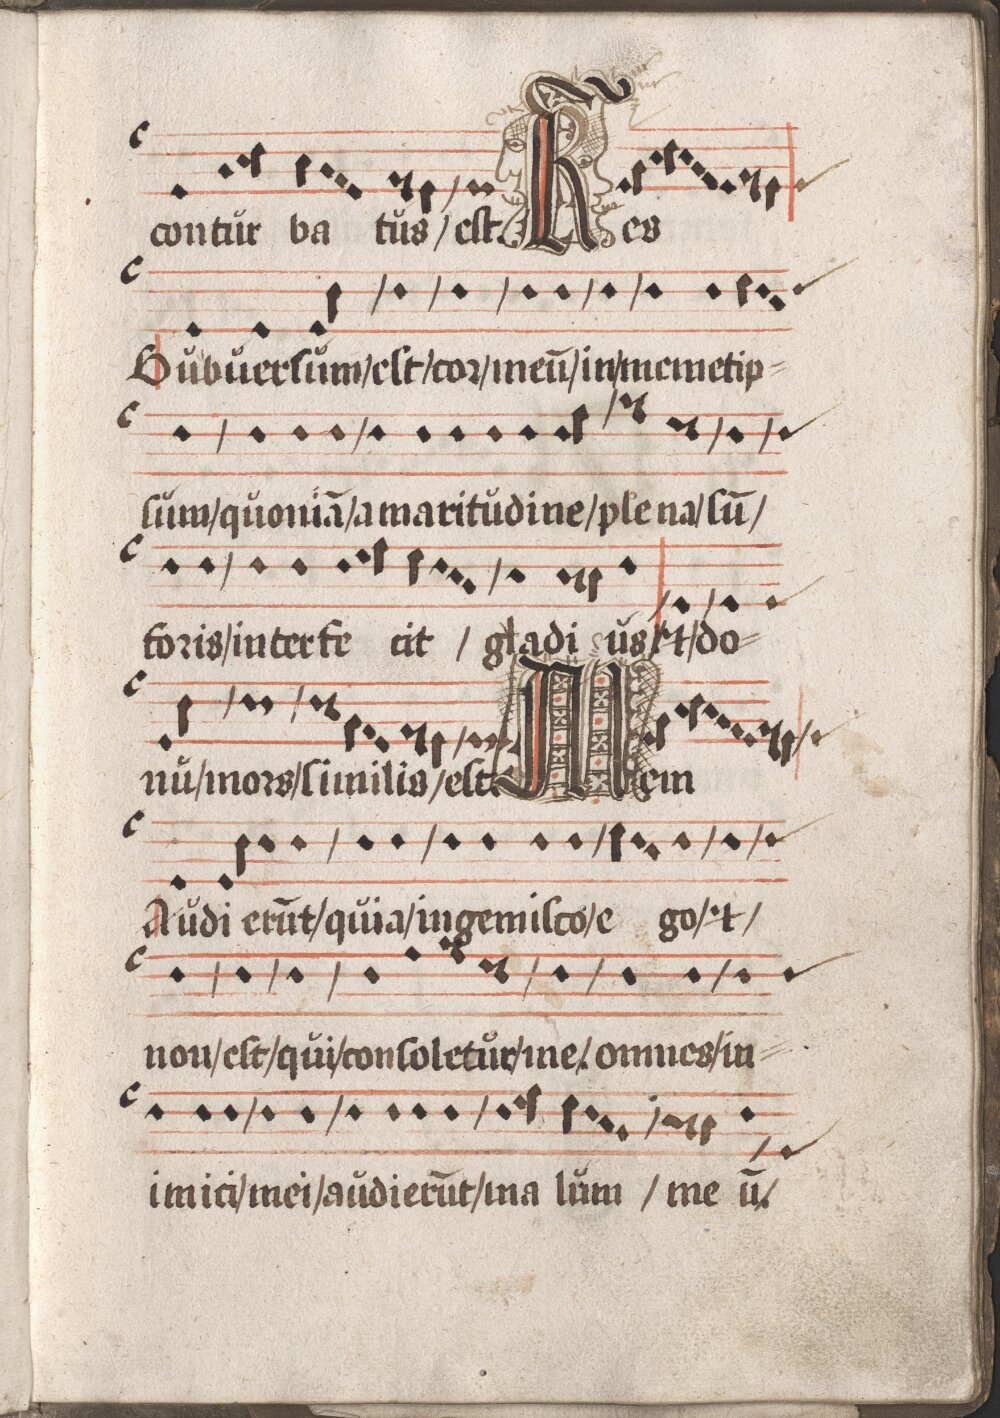 contur ba tus / est. Res
Subuersum / est / cor / meū / in / memetip=
sum / quoniā / amaritudine / plena / sū /
foris / interfe cit / gladi us / et / do=
mū / mors / similis / est. Mem
Audi erūt / quia / ingemisco / e go / et /
non / est / qui / consoletur / me /. omnes / in=
imici / mei / audierūt / ma lum / me ū /.